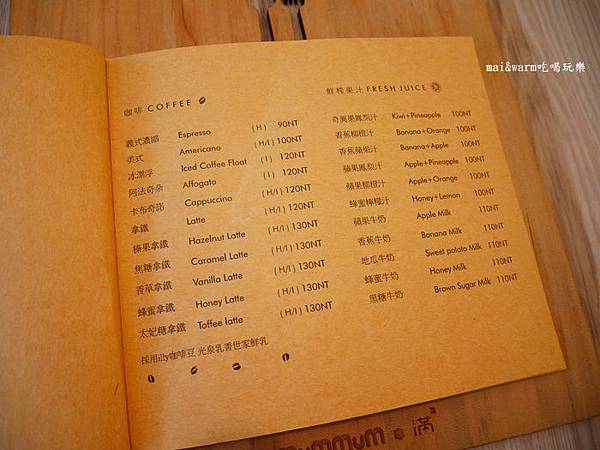 mai&warm吃喝玩樂
咖啡 COFFEE
義式濃縮 Espresso (H) 90NT
美式 Americano (H/I) 100NT
冰漂浮 Iced Coffee Float (I) 120NT
阿法奇朵 Affogato (I) 120NT
卡布奇諾 Cappuccino (H/I) 120NT
拿鐵 Latte (H/I) 120NT
榛果拿鐵 Hazelnut Latte (H/I) 130NT
焦糖拿鐵 Caramel Latte (H/I) 130NT
香草拿鐵 Vanilla Latte (H/I) 130NT
蜂蜜拿鐵 Honey Latte (H/I) 130NT
太妃糖拿鐵 Toffee latte (H/I) 130NT
採用illy咖啡豆 光泉乳香世家鮮乳
鮮榨果汁 FRESH JUICE
奇異果鳳梨汁 Kiwi+Pineapple 100NT
香蕉柳橙汁 Banana+Orange 100NT
香蕉蘋果汁 Banana+Apple 100NT
蘋果鳳梨汁 Apple+Pineapple 100NT
蘋果柳橙汁 Apple+Orange 100NT
蜂蜜檸檬汁 Honey+Lemon 100NT
蘋果牛奶 Apple Milk 110NT
香蕉牛奶 Banana Milk 110NT
地瓜牛奶 Sweet potato Milk 110NT
蜂蜜牛奶 Honey Milk 110NT
黑糖牛奶 Brown Sugar Milk 110NT